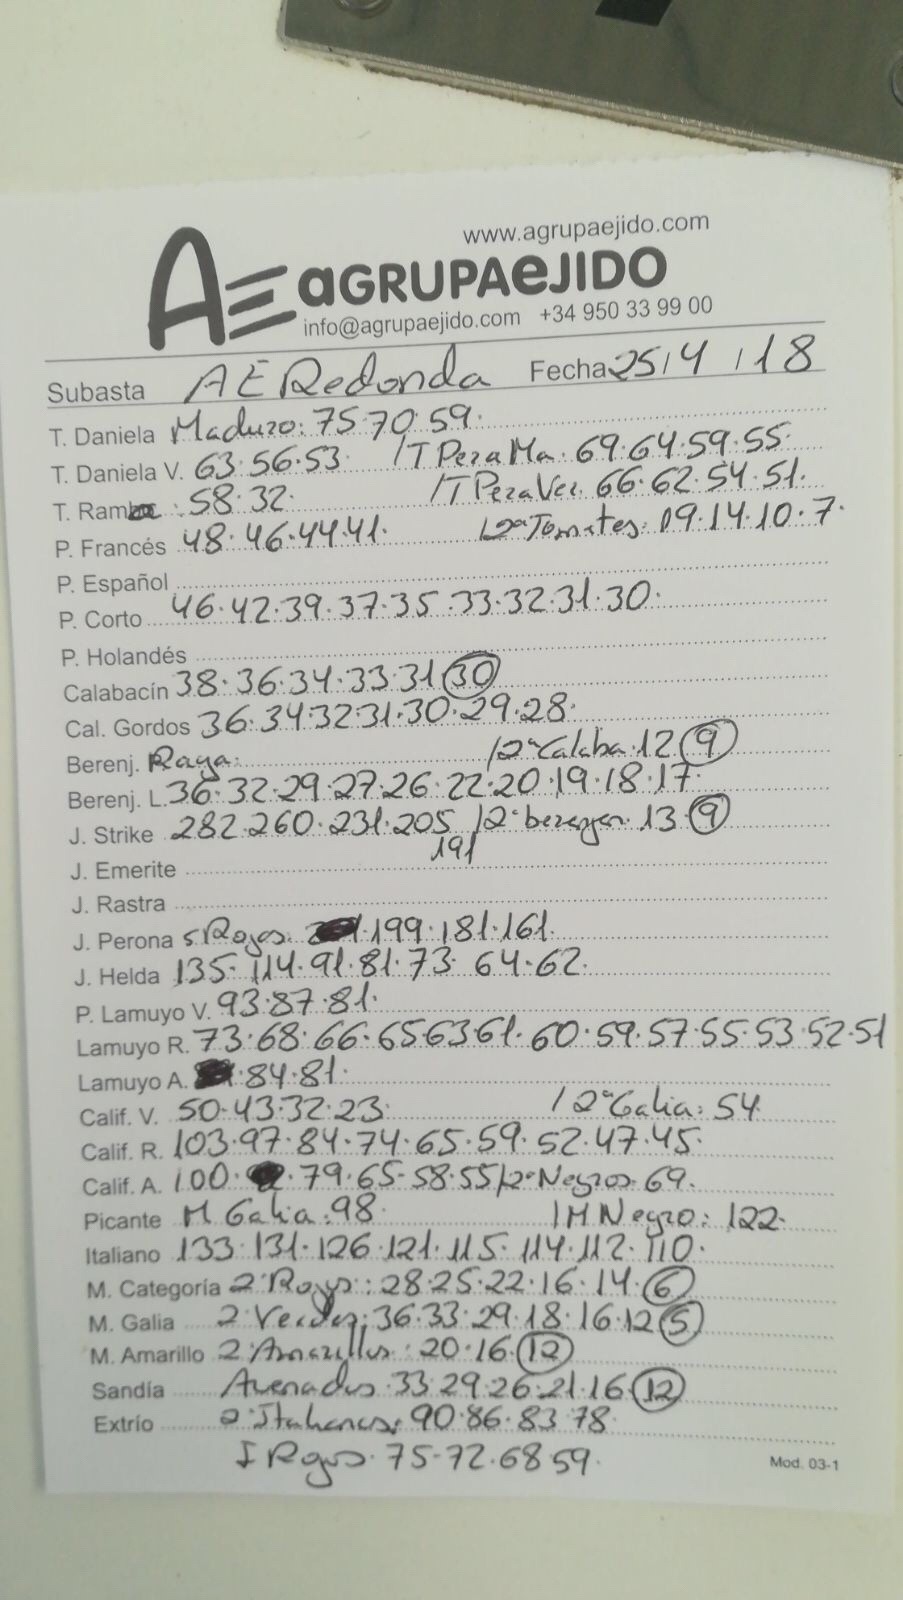 www.agrupaejido.com
AE aGRUPAeJIDO
info@agrupaejido.com +34 950 33 99 00
Subasta AE Redonda Fecha 25/4/18
T. Daniela Maduro: 75·70·59·
T. Daniela V. 63·56·53 / T Pera Ma. 69·64·59·55·
T. Rama : 58·32· / T Pera Ver. 66·62·54·51·
P. Francés 48·46·44·41· Tomates: 19·14·10·7·
P. Español
P. Corto 46·42·39·37·35·33·32·31·30·
P. Holandés
Calabacín 38·36·34·33·31 30
Cal. Gordos 36·34·32·31·30·29·28·
Berenj. Raya: / 2ª Calaba·12· 9
Berenj. L. 36·32·29·27·26·22·20·19·18·17·
J. Strike 282·260·231·205 / 2ª berenjen· 13· 9
191
J. Emerite
J. Rastra
J. Perona s Rojos. 199·181·161·
J. Helda 135·114·91·81·73·64·62·
P. Lamuyo V. 93·87·81·
Lamuyo R. 73·68·66·65·63·61·60·59·57·55·53·52·51
Lamuyo A. ·84·81·
Calif. V. 50·43·32·23· / 2ª Galia: 54
Calif. R. 103·97·84·74·65·59·52·47·45·
Calif. A. 100· ·79·65·58·55 / 2ª Negros·69·
Picante M Galia: 98· / M Negro: 122·
Italiano 133·131·126·121·115·114·112·110·
M. Categoría 2ª Rojos: 28·25·22·16·14· 6
M. Galia 2 Verdes: 36·33·29·18·16·12 5
M. Amarillo 2 Amarillos: 20·16· 12
Sandía Avenados·33·29·26·21·16· 12
Extrío 2ª Italianos: 90·86·83·78·
I Rojos·75·72·68·59·
Mod. 03-1